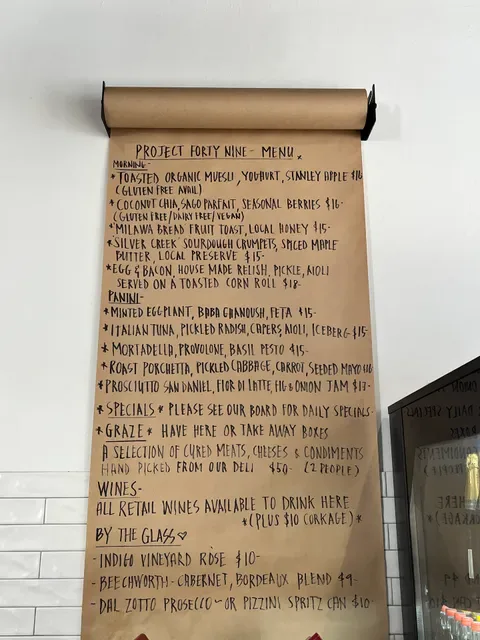 PROJECT FORTY NINE - MENU
MORNING-
*TOASTED ORGANIC MUESLI, YOGHURT, STANLEY APPLE $16
(GLUTEN FREE AVAIL)
*COCONUT CHIA, SAGO PARFAIT, SEASONAL BERRIES $16-
(GLUTEN FREE/DAIRY FREE/VEGAN)
*MILAWA BREAD FRUIT TOAST, LOCAL HONEY $15-
*'SILVER CREEK' SOURDOUGH CRUMPETS, SPICED MAPLE
BUTTER, LOCAL PRESERVE $15-
*EGG & BACON, HOUSE MADE RELISH, PICKLE, AIOLI
SERVED ON A TOASTED CORN ROLL $18-
PANINI-
*MINTED EGGPLANT, BABA GHANOUSH, FETA $15-
*ITALIAN TUNA, PICKLED RADISH, CAPERS, AIOLI, ICEBERG-$15-
*MORTADELLA, PROVOLONE, BASIL PESTO $15-
*ROAST PORCHETTA, PICKLED CABBAGE, CARROT, SEEDED MAYO $16
*PROSCIUTTO SAN DANIEL, FIOR DI LATTE, FIG & ONION JAM $17-
*SPECIALS* PLEASE SEE OUR BOARD FOR DAILY SPECIALS-
*GRAZE* HAVE HERE OR TAKE AWAY BOXES
A SELECTION OF CURED MEATS, CHEESES & CONDIMENTS
HAND PICKED FROM OUR DELI $50- (2 PEOPLE)
WINES-
ALL RETAIL WINES AVAILABLE TO DRINK HERE
*(PLUS $10 CORKAGE)*
BY THE GLASS♡
- INDIGO VINEYARD ROSE $10-
- BEECHWORTH - CABERNET, BORDEAUX BLEND $9-
- DAL ZOTTO PROSECCO - OR PIZZINI SPRITZ CAN $10-